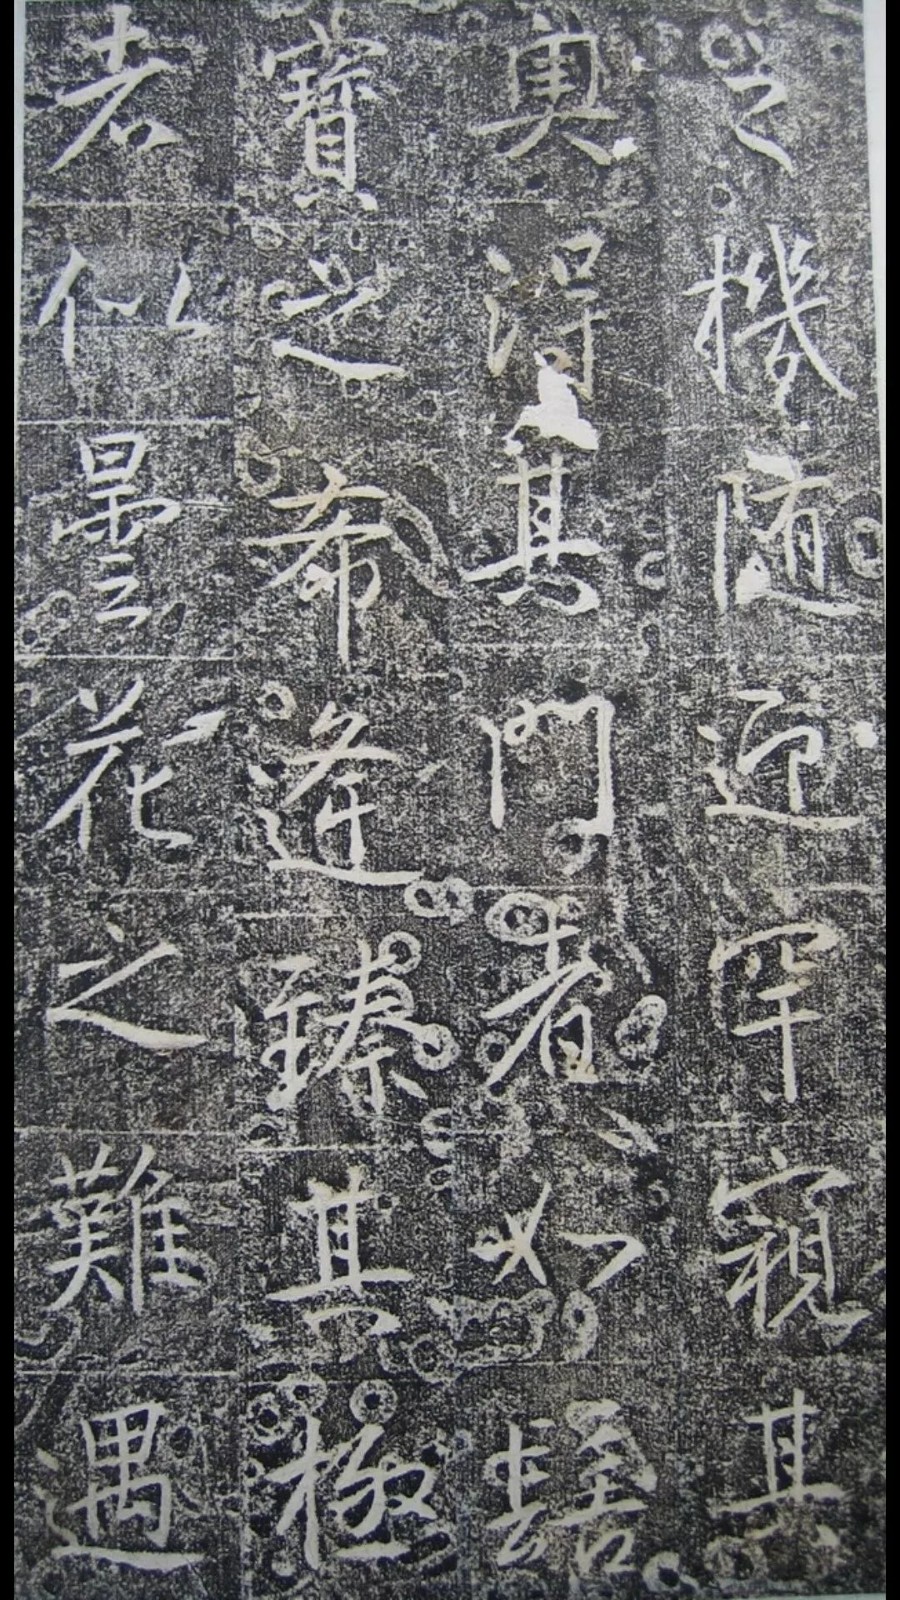 之機随迎罕窺其
奥得其門者如髻
寶之希逢臻其極
者似曇花之難遇